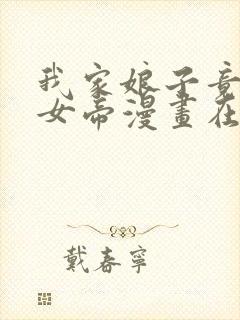 我家娘子竟
女帝漫畫在
戴春寧